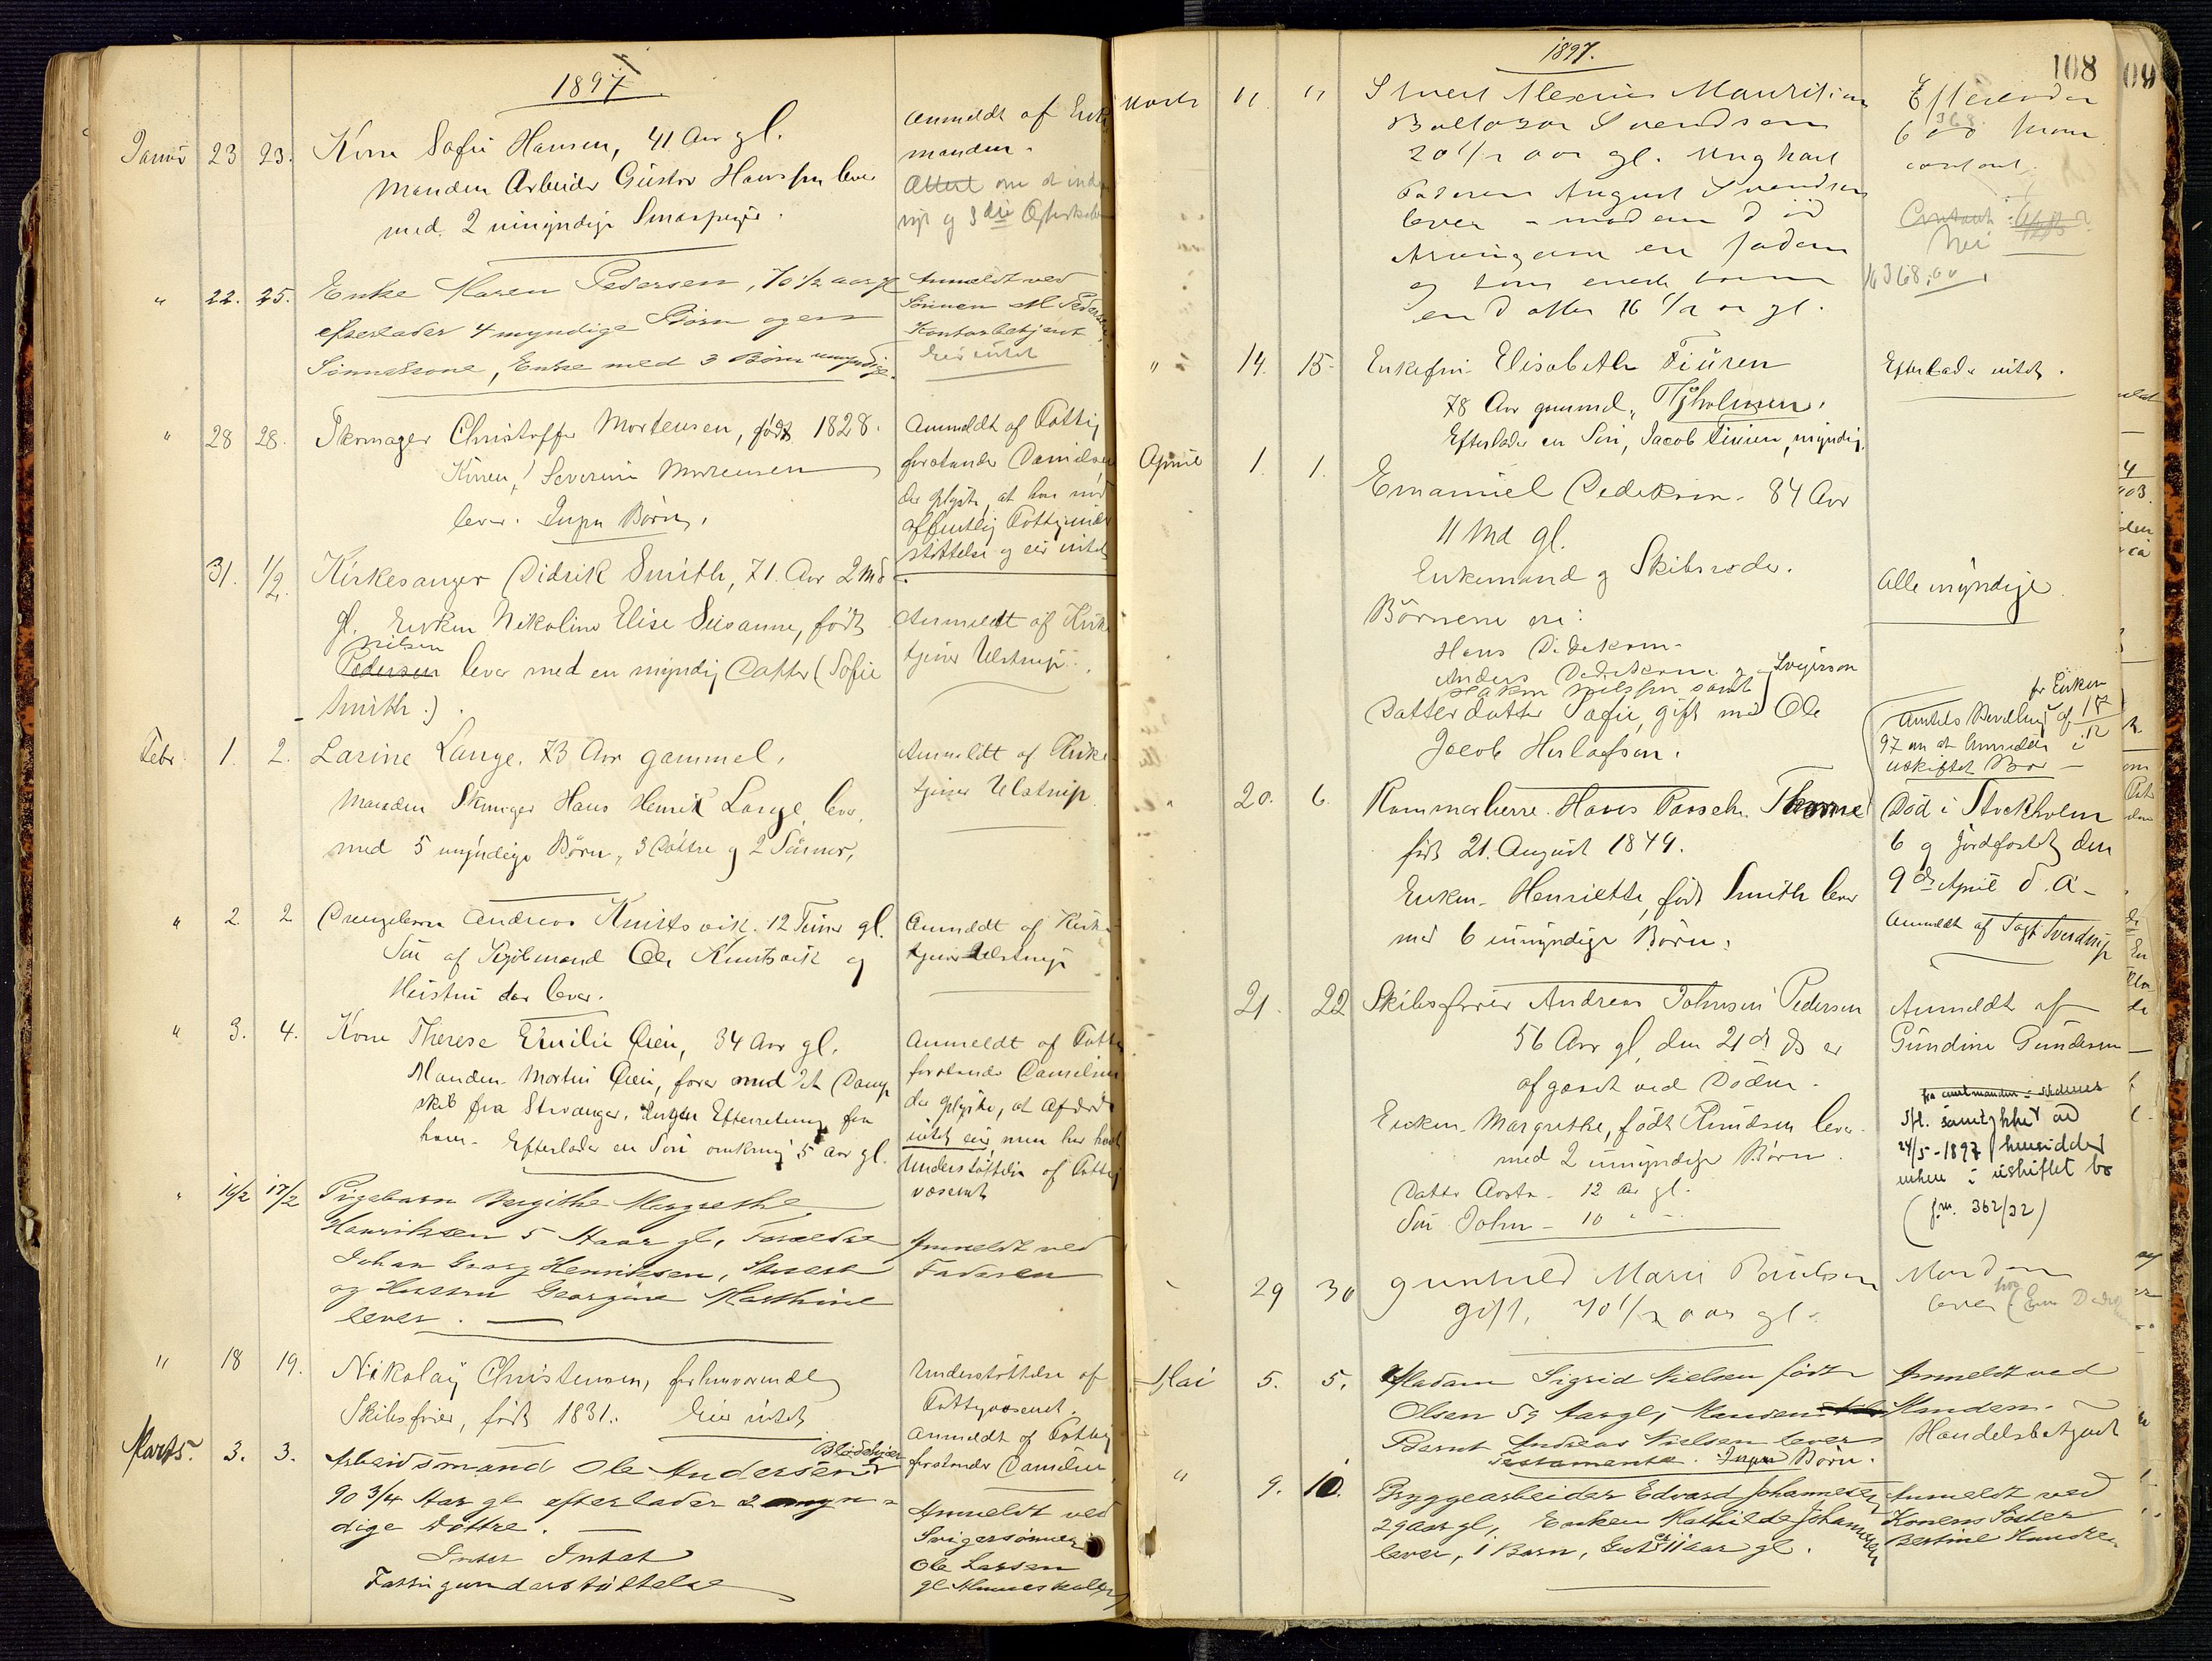 1897
Januar 23 23. Kone Sofie Hansen, 41 Aar gl.
Manden Arbeider Gustav Hansen lever
med 2 umyndige Smaapiger.
Anmeldt af Enke
manden.
Attest om at
" 22. 25. Enke Karen Pedersen, 70 1/2 aar gl
efterlader 4 myndige Børn og en
Sønnekone, Enke med 3 Børn umyndige.
Anmeldt ved
Sønnen M Pedersen
Kontorbetjent
Eier intet
" 28 28. Skomager Christoffer Mortensen, født 1828.
Konen, Severine Mortensen
lever. Ingen Børn.
Anmeldt af Fattig
forstander Danielsen
der oplyste, at han nød
offentlig Fattigunder
støttelse og eier intet
31. 1/2. Kirkesanger Didrik Smith, 71 Aar 2 Md
gl. Enken Nikoline Elise Susanne, født
Nilsen
Pedersen lever med en myndig Datter (Sofie
Smith).
Anmeldt af Kirke
tjener Ulstrup.
Febr. 1. 2. Larine Lange. 73 Aar gammel.
Manden Skomager Hans Henrik Lange lever
med 5 myndige Børn, 3 Døttre og 2 Sønner.
Anmeldt af Kirke-
tjener Ulstrup.
" 2. 2 Drengebarn Andreas Knutsvik. 12 Timer gl.
Søn af Kjøbmand Ole Knutsvik og
Hustru der lever.
Anmeldt af Kirke-
tjener Ulstrup
" 3. 4. Kone Therese Emilie Øien, 34 Aar gl.
Manden Martin Øien, farer med et Damp
skib fra Stavanger. Ingen Efterretning fra
ham. Efterlader en Søn omkring 5 Aar gl.
Anmeldt af Fattig
forstander Danielsen
der oplyste, at Afdøde
intet eier, men har havt
Understøttelse af Fattig
væsenet
" 16/2 17/2 Pigebarn Bergithe Margrethe
Henriksen 5 Aar gl, Forældre
Johan Georg Henriksen, Stuert
og Hustru Georgine Mathine
lever.
Anmeldt ved
Faderen
" 18 19. Nikolay Christensen, forhenværende
Skibsfører, født 1831. Eier intet
Understøttelse af
Fattigvæsenet.
Anmeldt af Fattig
forstander Danielsen
Marts. 3. 3. Arbeidsmand Ole Andersen
90 3/4 Aar gl efterlader 2 myn-
dige Døttre.
Intet Intet
Fattigunderstøttelse
Anmeldt ved
Svigersønnen
Ole Larsen
1897.
108
Marts 11 11 Sivert Alexius Mauritius
Baltazar Svendsen
20 1/2 aar gl. Ungkarl
Faderen August Svendsen
lever - moderen død
Arvingerne er faderen
og hans eneste barn
en datter 16 1/2 aar gl.
Efterlader
368
600 kroner
contant.
Nei
368,00
" 14. 15. Enkefru Elisabeth Tiüren
78 Aar gammel, Tjholmen.
Efterlader en Søn, Jacob Tiüren, myndig.
Efterlader intet.
April 1. 1. Emanuel Dedekam. 84 Aar
11 Md gl.
Enkemand og Skibsreder.
Børnene ere:
Hans Dedekam
Anders Dedekam og Svigersøn
Håkon Nilssen samt
Datterdatter Sofie, gift med Ole
Jacob Herlofson.
Alle myndige.
for Enken
Amtets Bevilling af 17/12
97 om at hensidde i
uskiftet Bo
" 20. 6. Kammerherre Hans Paasche Thorne
født 21. August 1844.
Enken Henriette, født Smith lever
med 6 umyndige Børn.
Død i Stockholm
6 og Jordfæstet den
9de April d. A-
Anmeldt af Fogt Sverdrup
21. 22 Skibsfører Andreas Johnsen Pedersen
56 Aar gl, den 21de ds er
afgaaet ved Døden.
Enken Margrethe, født Knudsen lever
med 2 umyndige Børn.
Datter Aasta - 12 Aar gl.
Søn John - 10 " -
Anmeldt af
Gundine Gundersen
fra amtmanden
Ifl. samtykke av
24/5-1897 hensidder
enken i uskiftet bo
(j.nr. 362/32)
29 30 Gunhild Marie Paulsen
Gift, 70 1/2 aar gl.
Manden
lever
Mai 5. 5. Madam Sigrid Nielsen født
Olsen 59 Aar gl, Manden
Bernt Andreas Nielsen lever
Testamente. Ingen Børn.
Anmeldt ved
Manden.
Handelsbetjent
" 9. 10. Bryggearbeider Edvard Johannesen
29 aar gl, Enken Mathilde Johannesen
lever, 1 Barn, Gut 11 aar gl.
Anmeldt ved
Konens Søster